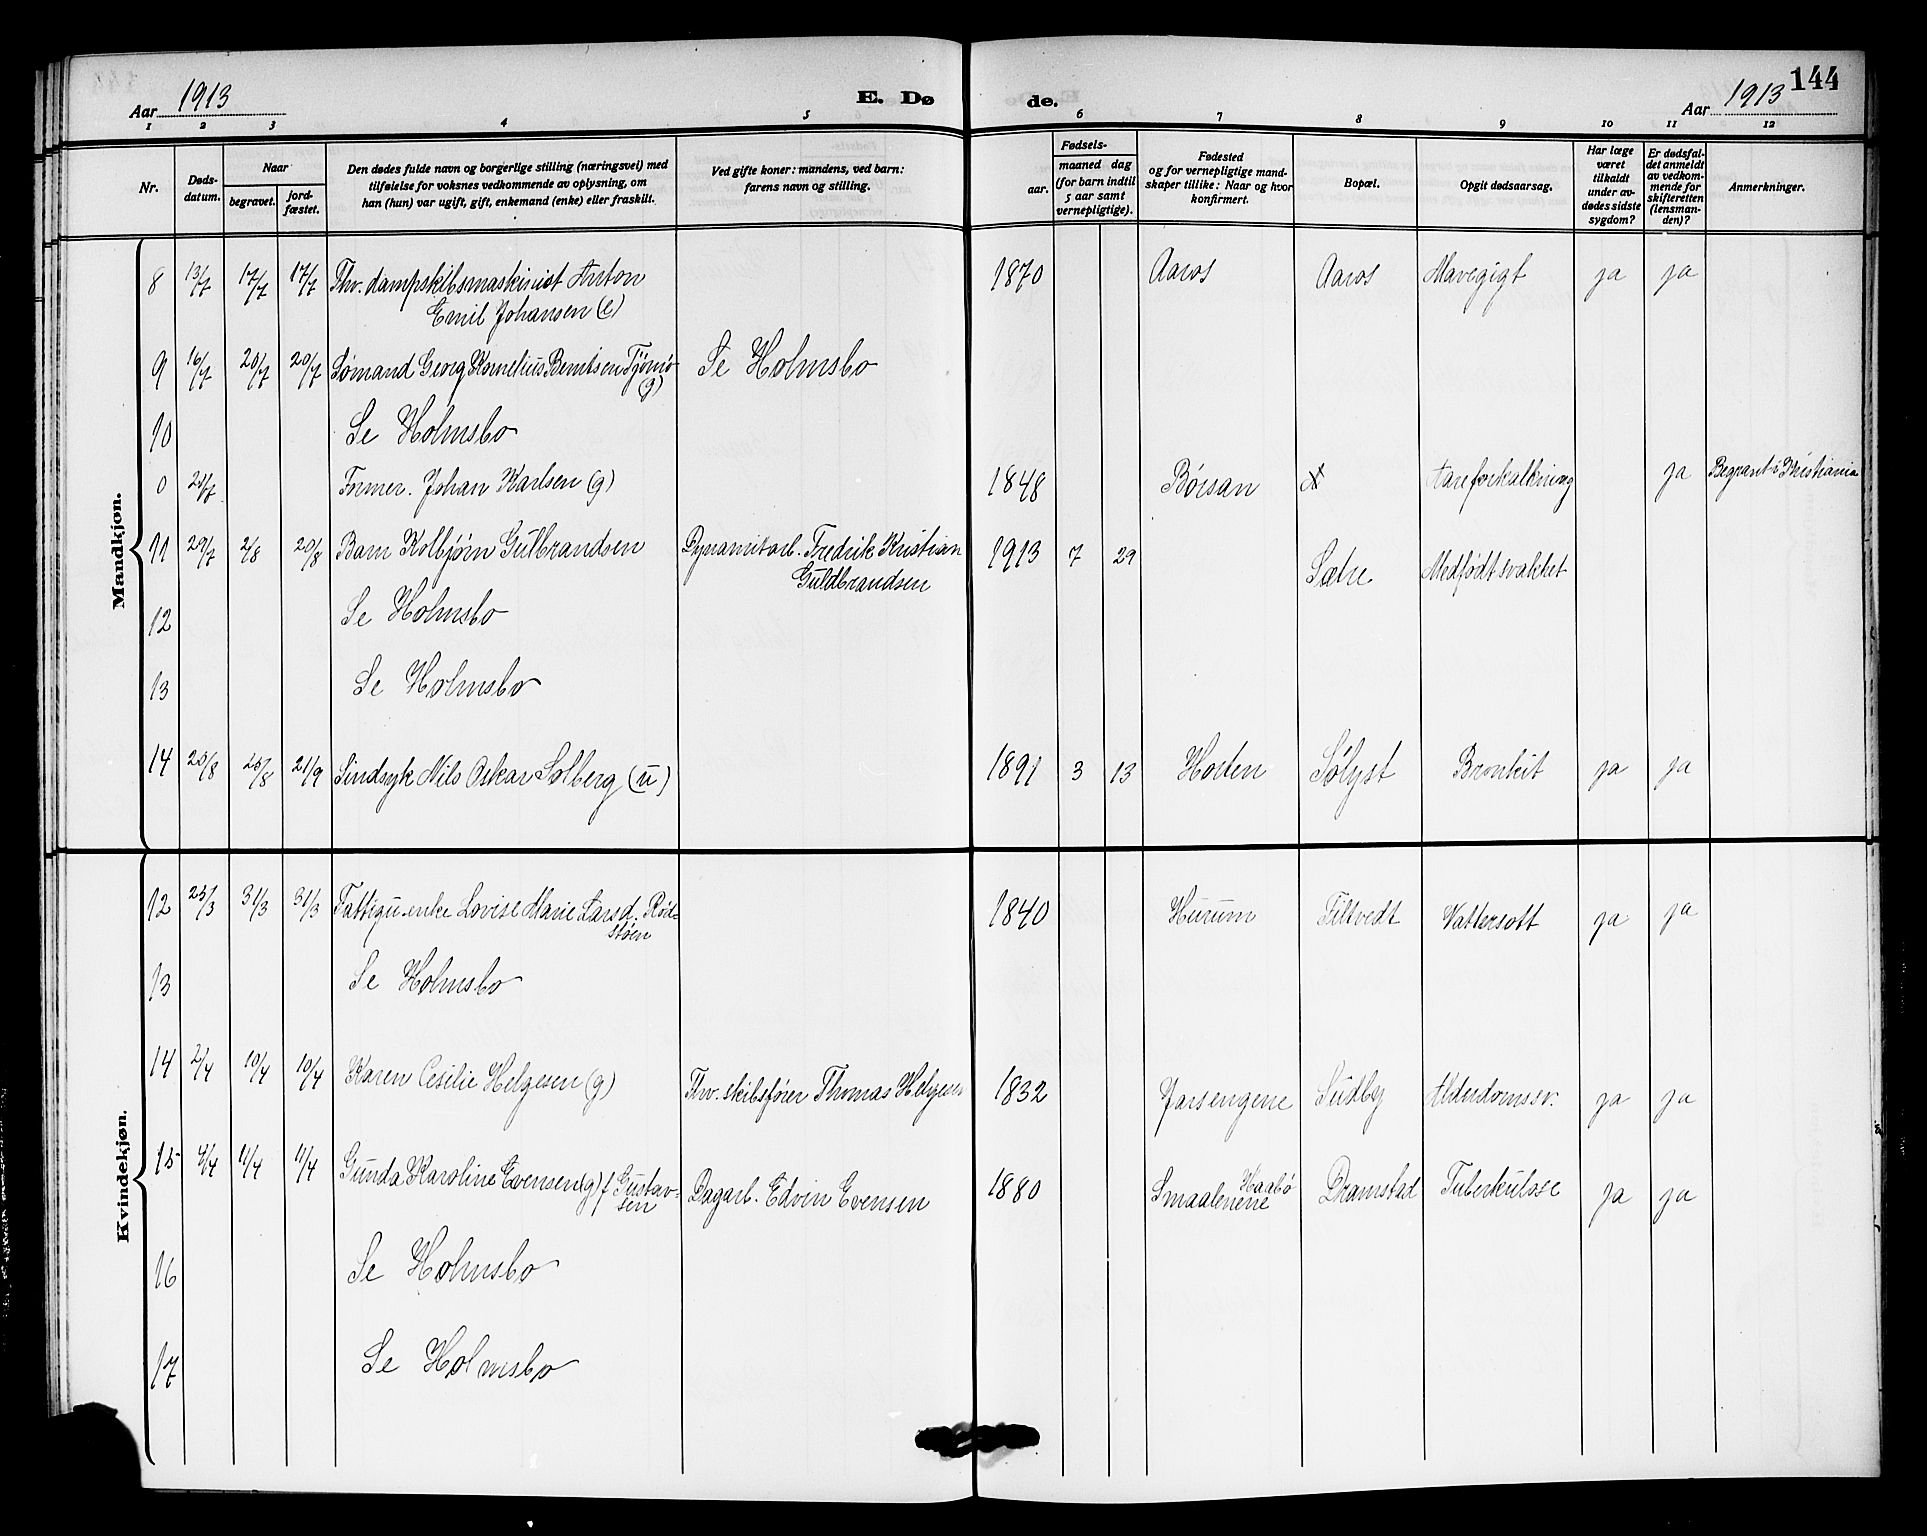 Aar 1913
E. Dø
de.
Aar 1913
144
1 2 3 4 5 6 7 8 9 10 11 12
Nr.
Døds-
datum.
Naar
begravet.
jord-
fæstet.
Den dødes fulde navn og borgerlige stilling (næringsvei) med
tilføielse for voksnes vedkommende av oplysning, om
han (hun) var ugift, gift, enkemand (enke) eller fraskilt.
Ved gifte koner: mandens, ved barn:
farens navn og stilling.
Fødsels-
aar.
maaned dag
(for barn indtil
5 aar samt
vernepligtige).
Fødested
og for vernepligtige mand-
skaper tillike: Naar og hvor
konfirmert.
Bopæl.
Opgit dødsaarsag.
Har læge
været
tilkaldt
under av-
dødes sidste
sygdom?
Er dødsfal-
det anmeldt
av vedkom-
mende for
skifteretten
(lensman-
den)?
Anmerkninger.
Mandkjøn.
8 13/7 17/7 17/7 Fhv. dampskibsmaskinist Anton 1870 Aaros Aaros Mavegigt ja ja
Emil Johansen (e)
9 16/7 20/7 20/7 Sømand Georg Kornelius Berntsen Tjømø Se Holmsbo
(g)
10 Se Holmsbo
0 Former. Johan Karlsen (g) 1848 Børsan Aareforkalkning ja Begravet i Kristiania
11 29/7 2/8 20/8 Barn Kolbjørn Gulbrandsen Dynamitarb. Fredrik Kristian 1913 7 29 Sætre Medfødt svakhet
Guldbrandsen
12 Se Holmsbo
13 Se Holmsbo
14 21/9 Sindsyk Nils Oskar Solberg (u) 1891 3 13 Horten Sølyst Bronkit ja ja
Kvindekjøn.
12 31/3 31/3 Fattigu. enke Lovise Marie Larsd. Rød- 1840 Hurum Filtvedt Vattersott ja ja
støen
13 Se Holmsbo
14 2/4 10/4 10/4 Karen Cesilie Helgesen (g) Fhv. skibsfører Thomas Helgesen 1832 Jarsengene Sudby Alderdomssv. ja ja
15 4/4 11/4 11/4 Gunda Karoline Evensen (g) f Gustav- Dagarb. Edvin Evensen 1880 Haabø Dramstad Tuberkulose ja ja
sen Smaalenene
16 Se Holmsbo
17 Se Holmsbo